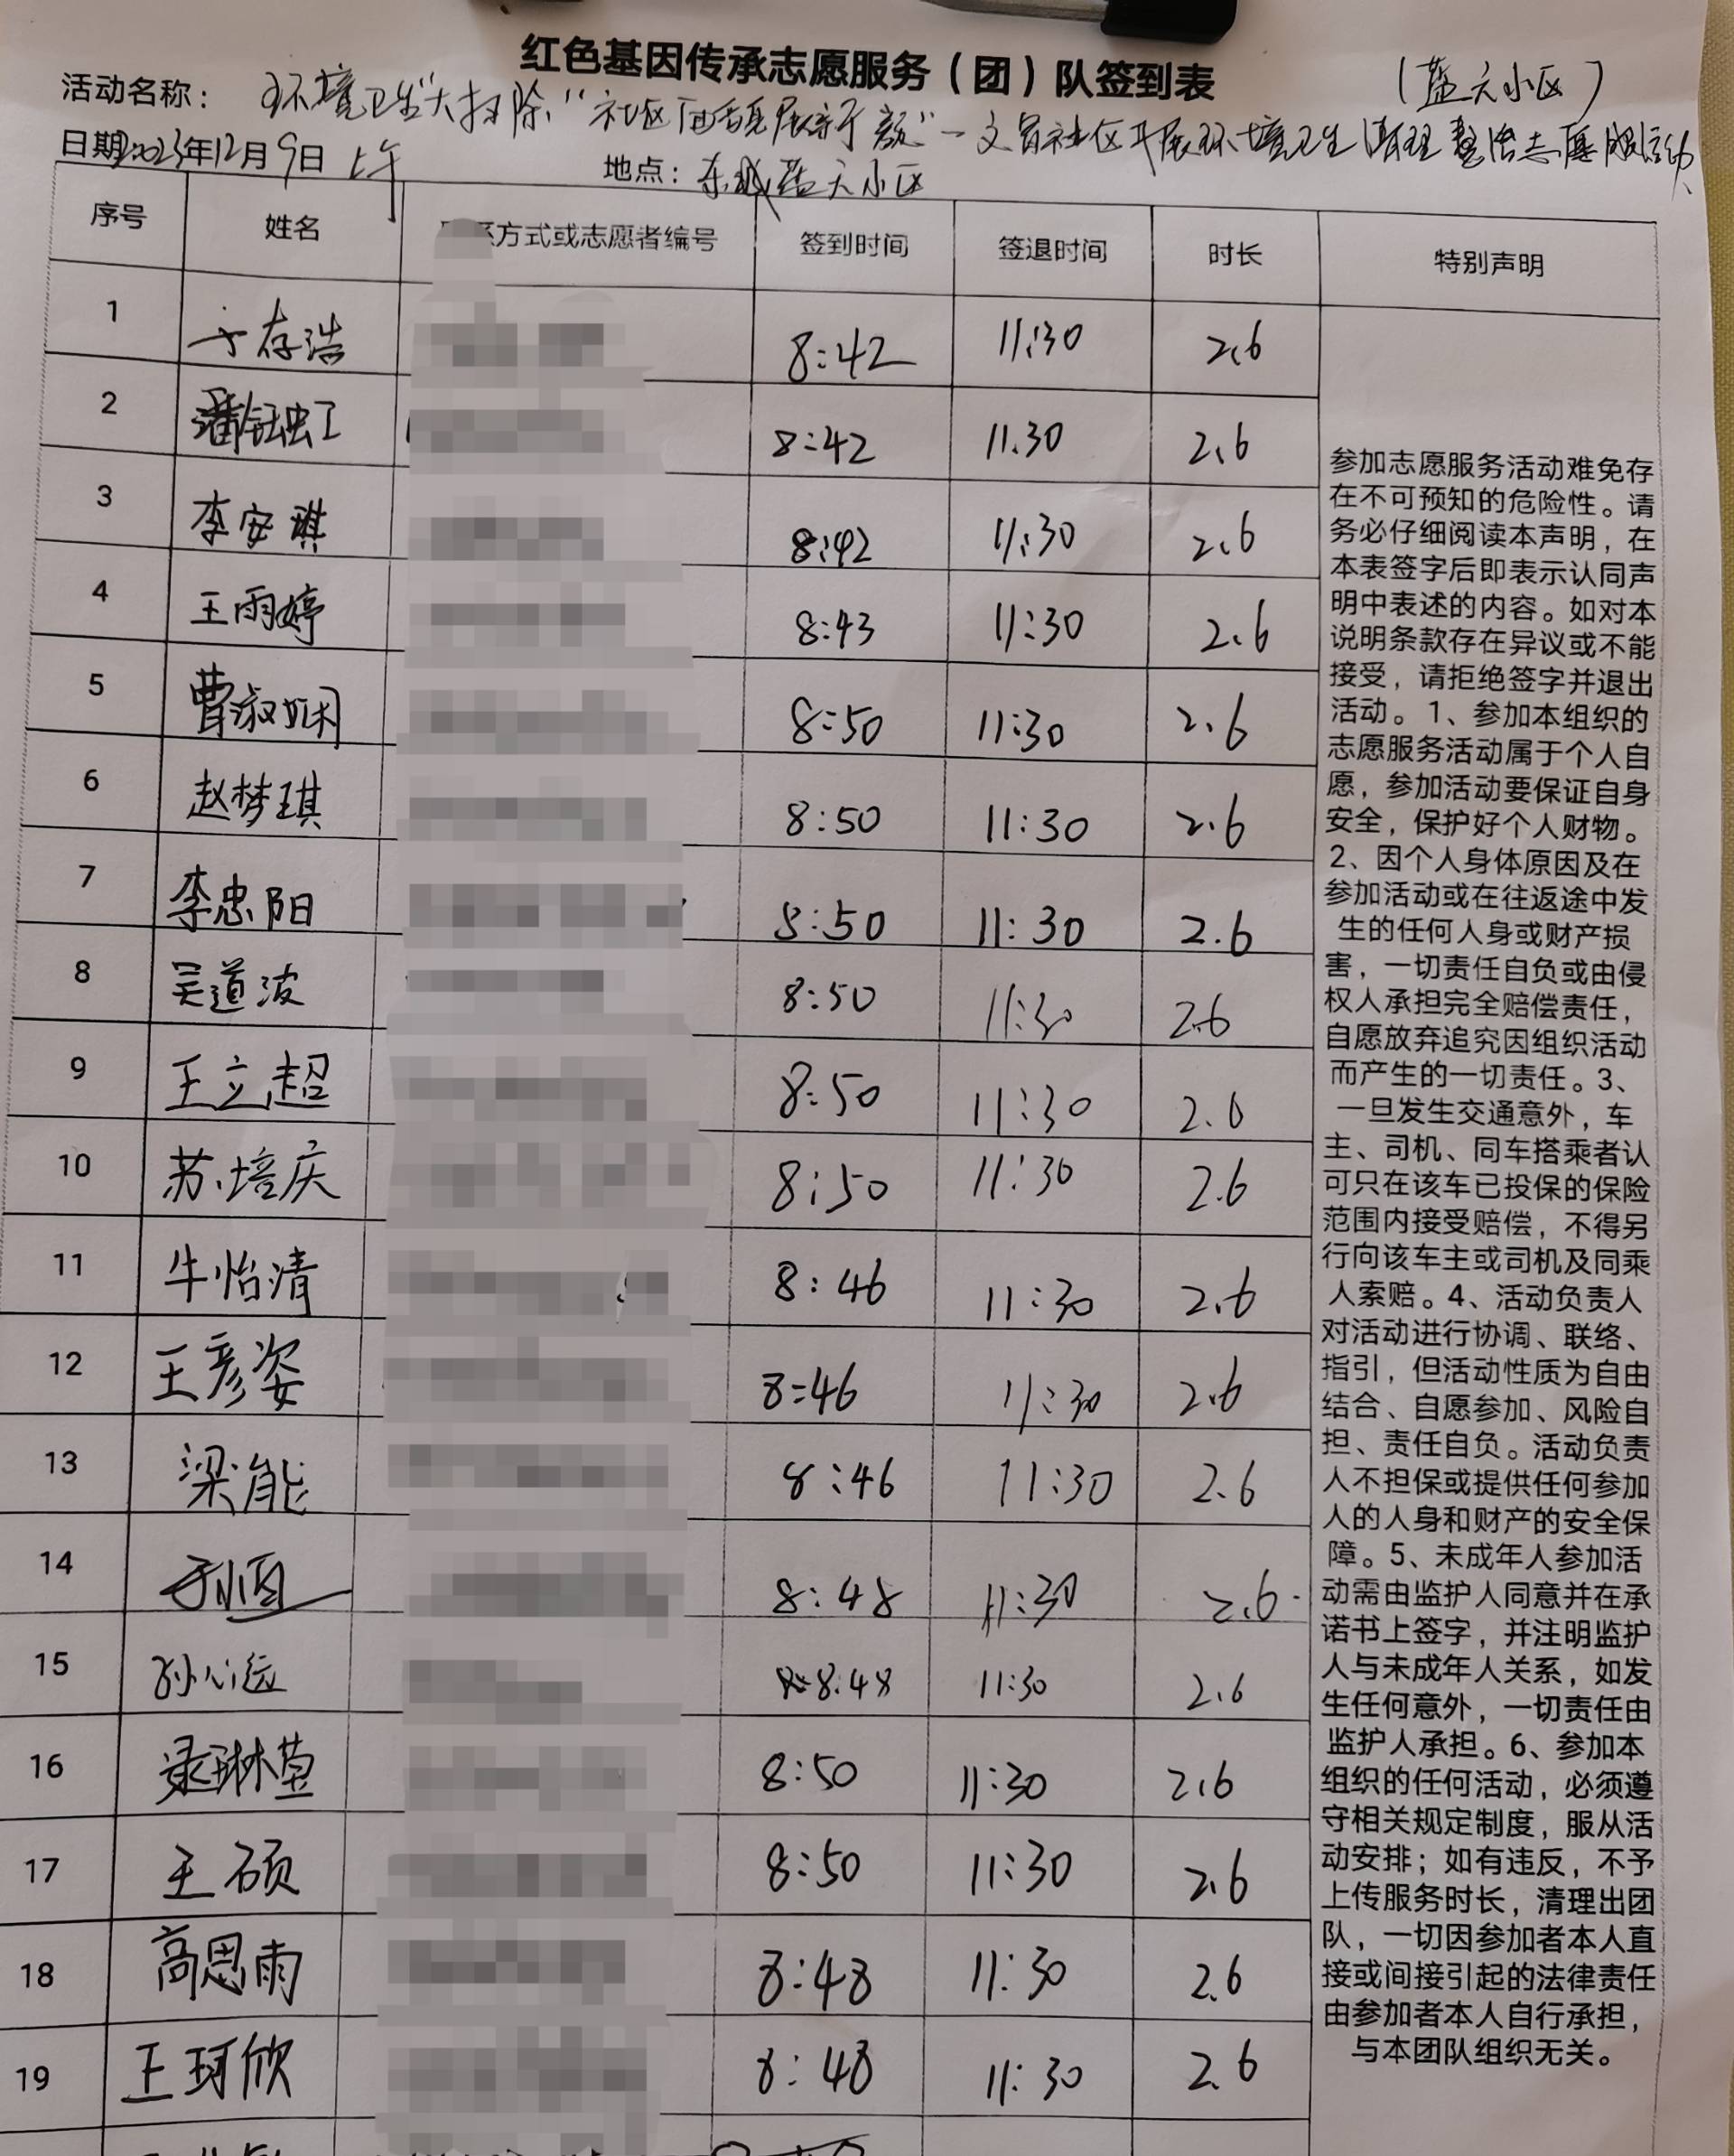 红色基因传承志愿服务（团）队签到表
（蓝天小区）
活动名称： 环境卫生大扫除，“社区面貌展新颜”—文昌社区开展环境卫生清理整治志愿服务活动
日期2023年12月9日 上午 地点：东城蓝天小区
序号 姓名 系方式或志愿者编号 签到时间 签退时间 时长 特别声明
1 于存浩 8:42 11:30 2.6
2 潘钰虹 8:42 11.30 2.6
3 李安琪 8:42 11:30 2.6
4 王雨婷 8:43 11:30 2.6
5 曹淑娴 8:50 11:30 2.6
6 赵梦琪 8:50 11:30 2.6
7 李忠阳 8:50 11:30 2.6
8 吴道波 8:50 11:30 2.6
9 王立超 8:50 11:30 2.6
10 苏培庆 8:50 11:30 2.6
11 牛怡清 8:46 11:30 2.6
12 王彦姿 8:46 11:30 2.6
13 梁能 8:46 11:30 2.6
14 8:48 11:30 2.6
15 孙心远 8:48 11:30 2.6
16 梁琳莹 8:50 11:30 2.6
17 王硕 8:50 11:30 2.6
18 高思雨 8:48 11:30 2.6
19 王珂欣 8:48 11:30 2.6
参加志愿服务活动难免存
在不可预知的危险性。请
务必仔细阅读本声明，在
本表签字后即表示认同声
明中表述的内容。如对本
说明条款存在异议或不能
接受，请拒绝签字并退出
活动。1、参加本组织的
志愿服务活动属于个人自
愿，参加活动要保证自身
安全，保护好个人财物。
2、因个人身体原因及在
参加活动或在往返途中发
生的任何人身或财产损
害，一切责任自负或由侵
权人承担完全赔偿责任，
自愿放弃追究因组织活动
而产生的一切责任。3、
一旦发生交通意外，车
主、司机、同车搭乘者认
可只在该车已投保的保险
范围内接受赔偿，不得另
行向该车主或司机及同乘
人索赔。4、活动负责人
对活动进行协调、联络、
指引，但活动性质为自由
结合、自愿参加、风险自
担、责任自负。活动负责
人不担保或提供任何参加
人的人身和财产的安全保
障。5、未成年人参加活
动需由监护人同意并在承
诺书上签字，并注明监护
人与未成年人关系，如发
生任何意外，一切责任由
监护人承担。6、参加本
组织的任何活动，必须遵
守相关规定制度，服从活
动安排；如有违反，不予
上传服务时长，清理出团
队，一切因参加者本人直
接或间接引起的法律责任
由参加者本人自行承担，
与本团队组织无关。